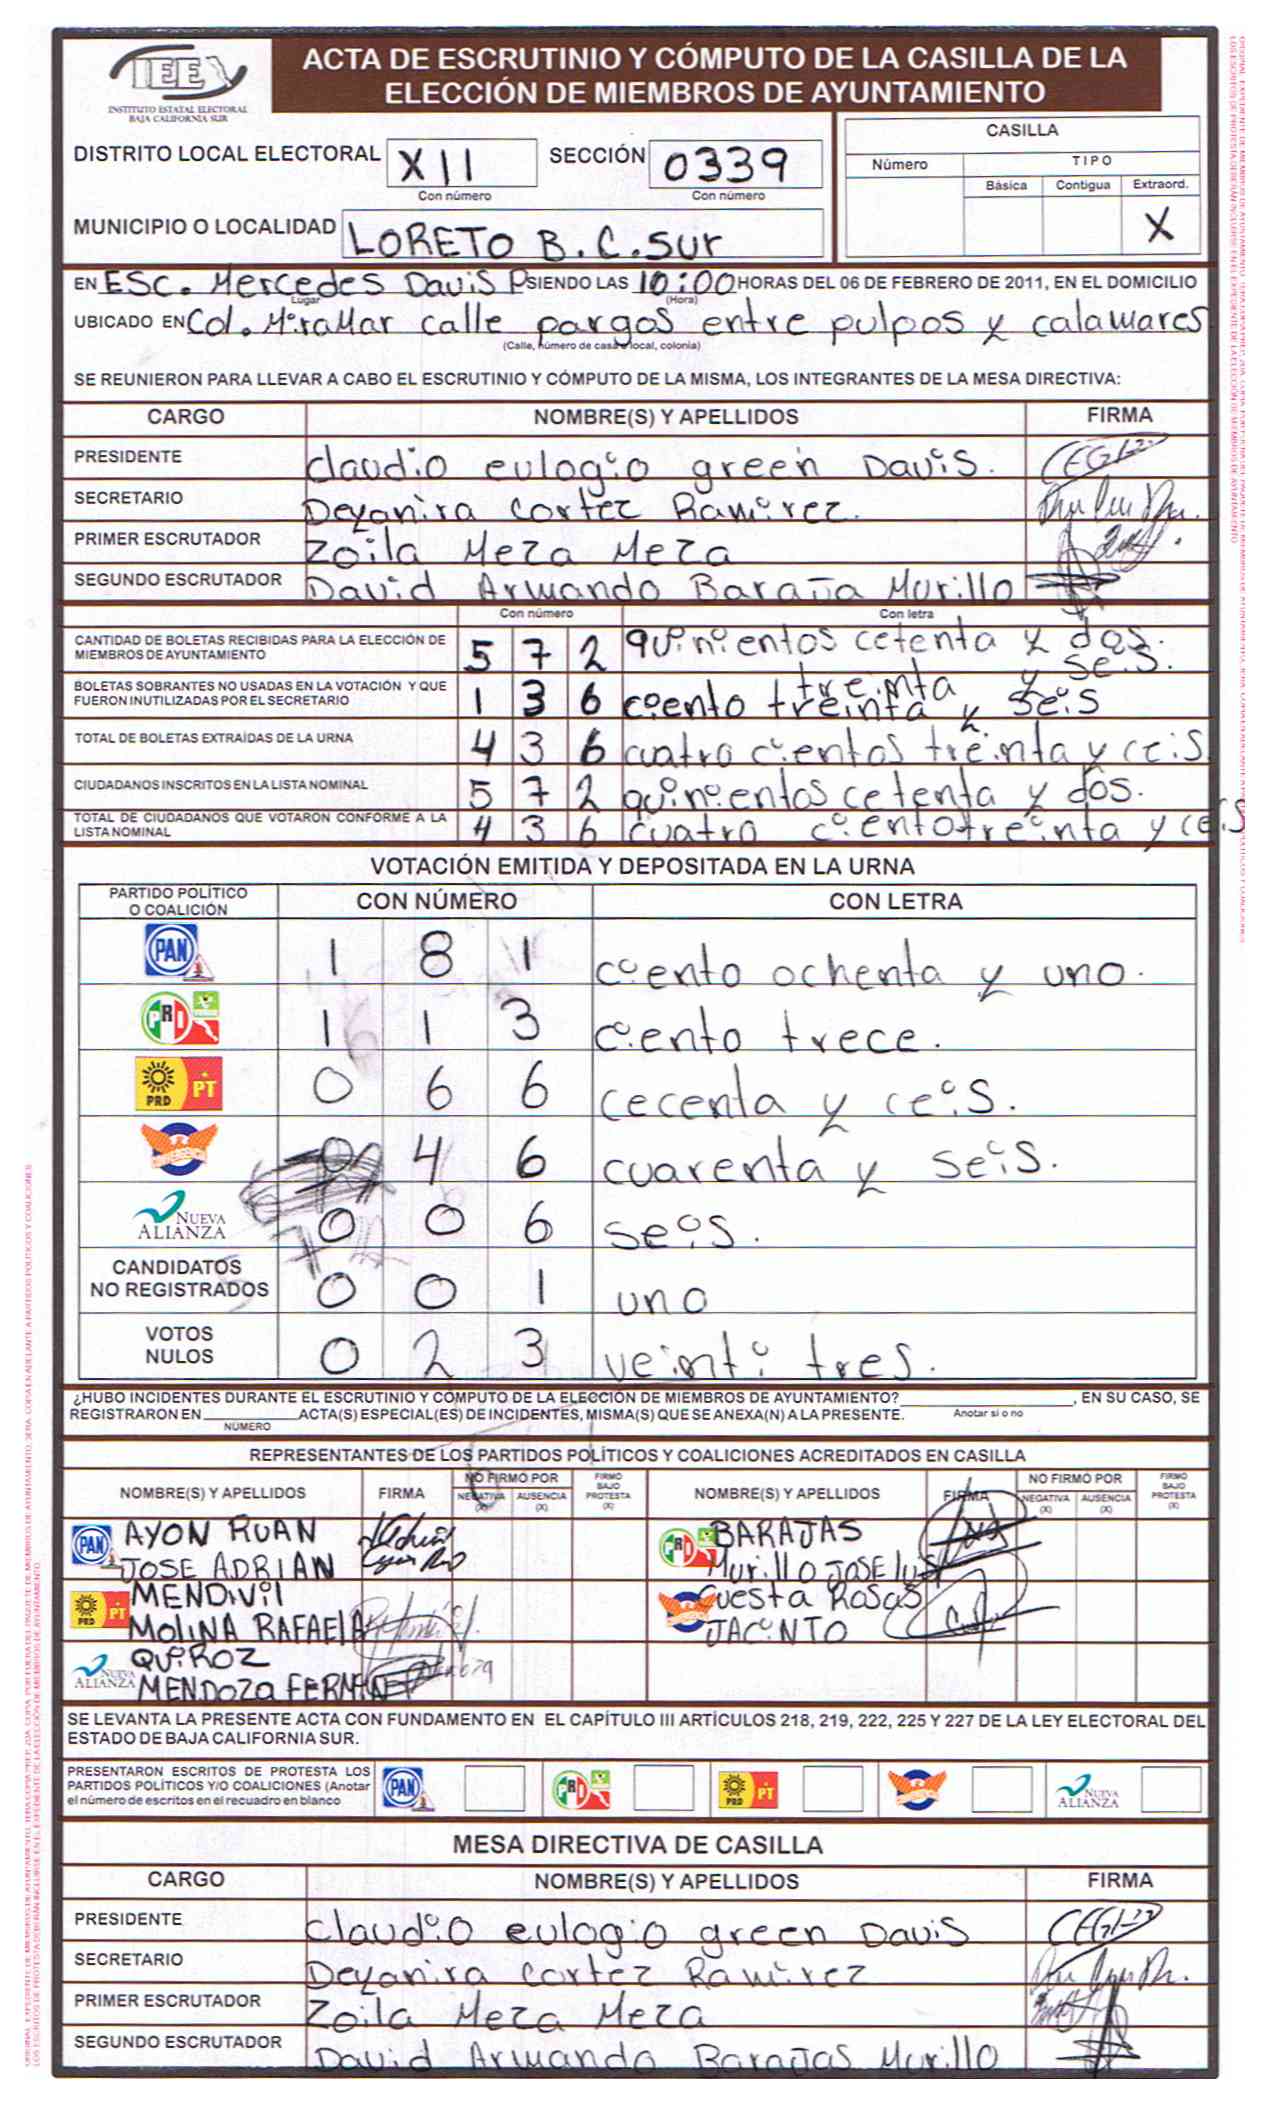 IEE
INSTITUTO ESTATAL ELECTORAL
BAJA CALIFORNIA SUR
ACTA DE ESCRUTINIO Y CÓMPUTO DE LA CASILLA DE LA
ELECCIÓN DE MIEMBROS DE AYUNTAMIENTO
DISTRITO LOCAL ELECTORAL XII SECCIÓN 0339
Con número Con número
CASILLA
Número TIPO
Básica Contigua Extraord.
X
MUNICIPIO O LOCALIDAD LORETO B.C.Sur
EN ESC. Mercedes Davis P SIENDO LAS 10:00 HORAS DEL 06 DE FEBRERO DE 2011, EN EL DOMICILIO
Lugar (Hora)
UBICADO EN Col. MiraMar calle pargos entre pulpos y calamares
(Calle, número de casa o local, colonia)
SE REUNIERON PARA LLEVAR A CABO EL ESCRUTINIO Y CÓMPUTO DE LA MISMA, LOS INTEGRANTES DE LA MESA DIRECTIVA:
CARGO NOMBRE(S) Y APELLIDOS FIRMA
PRESIDENTE claudio eulogio green Davis.
SECRETARIO Deyanira Cortez Ramirez.
PRIMER ESCRUTADOR Zoila Meza Meza
SEGUNDO ESCRUTADOR David Armando Baraja Murillo
Con número Con letra
CANTIDAD DE BOLETAS RECIBIDAS PARA LA ELECCIÓN DE
MIEMBROS DE AYUNTAMIENTO 5 7 2 quinientos cetenta y dos.
treinta y seis.
BOLETAS SOBRANTES NO USADAS EN LA VOTACIÓN Y QUE
FUERON INUTILIZADAS POR EL SECRETARIO 1 3 6 ciento treinta y seis
TOTAL DE BOLETAS EXTRAÍDAS DE LA URNA 4 3 6 cuatro cientos treinta y ceis.
CIUDADANOS INSCRITOS EN LA LISTA NOMINAL 5 7 2 quinientos cetenta y dos.
TOTAL DE CIUDADANOS QUE VOTARON CONFORME A LA
LISTA NOMINAL 4 3 6 cuatro cientotreinta y ceis
VOTACIÓN EMITIDA Y DEPOSITADA EN LA URNA
PARTIDO POLÍTICO
O COALICIÓN CON NÚMERO CON LETRA
PAN 1 8 1 ciento ochenta y uno.
PRI 1 1 3 ciento trece.
PRD PT 0 6 6 cecenta y ceis.
CONVERGENCIA 0 4 6 cuarenta y seis.
NUEVA
ALIANZA 0 0 6 seis.
CANDIDATOS
NO REGISTRADOS 0 0 1 uno
VOTOS
NULOS 0 2 3 veinti tres.
¿HUBO INCIDENTES DURANTE EL ESCRUTINIO Y CÓMPUTO DE LA ELECCIÓN DE MIEMBROS DE AYUNTAMIENTO? , EN SU CASO, SE
REGISTRARON EN ACTA(S) ESPECIAL(ES) DE INCIDENTES, MISMA(S) QUE SE ANEXA(N) A LA PRESENTE. Anotar si o no
NÚMERO
REPRESENTANTES DE LOS PARTIDOS POLÍTICOS Y COALICIONES ACREDITADOS EN CASILLA
NOMBRE(S) Y APELLIDOS FIRMA NO FIRMO POR NEGATIVA (X) AUSENCIA (X) FIRMO BAJO PROTESTA (X) NOMBRE(S) Y APELLIDOS FIRMA NO FIRMO POR NEGATIVA (X) AUSENCIA (X) FIRMO BAJO PROTESTA (X)
PAN AYON RUAN PRI BARAJAS
JOSE ADRIAN Murillo JOSE luis
PRD PT MENDIVil Cuesta Rosas
MOLINA RAFAElA JACINTO
NUEVA ALIANZA QUIROZ
MENDOZA
SE LEVANTA LA PRESENTE ACTA CON FUNDAMENTO EN EL CAPÍTULO III ARTÍCULOS 218, 219, 222, 225 Y 227 DE LA LEY ELECTORAL DEL
ESTADO DE BAJA CALIFORNIA SUR.
PRESENTARON ESCRITOS DE PROTESTA LOS
PARTIDOS POLÍTICOS Y/O COALICIONES (Anotar
el número de escritos en el recuadro en blanco
PAN PRI PRD PT NUEVA ALIANZA
MESA DIRECTIVA DE CASILLA
CARGO NOMBRE(S) Y APELLIDOS FIRMA
PRESIDENTE Claudio eulogio green Davis
SECRETARIO Deyanira Cortez Ramirez
PRIMER ESCRUTADOR Zoila Meza Meza
SEGUNDO ESCRUTADOR David Armando Barajas Murillo